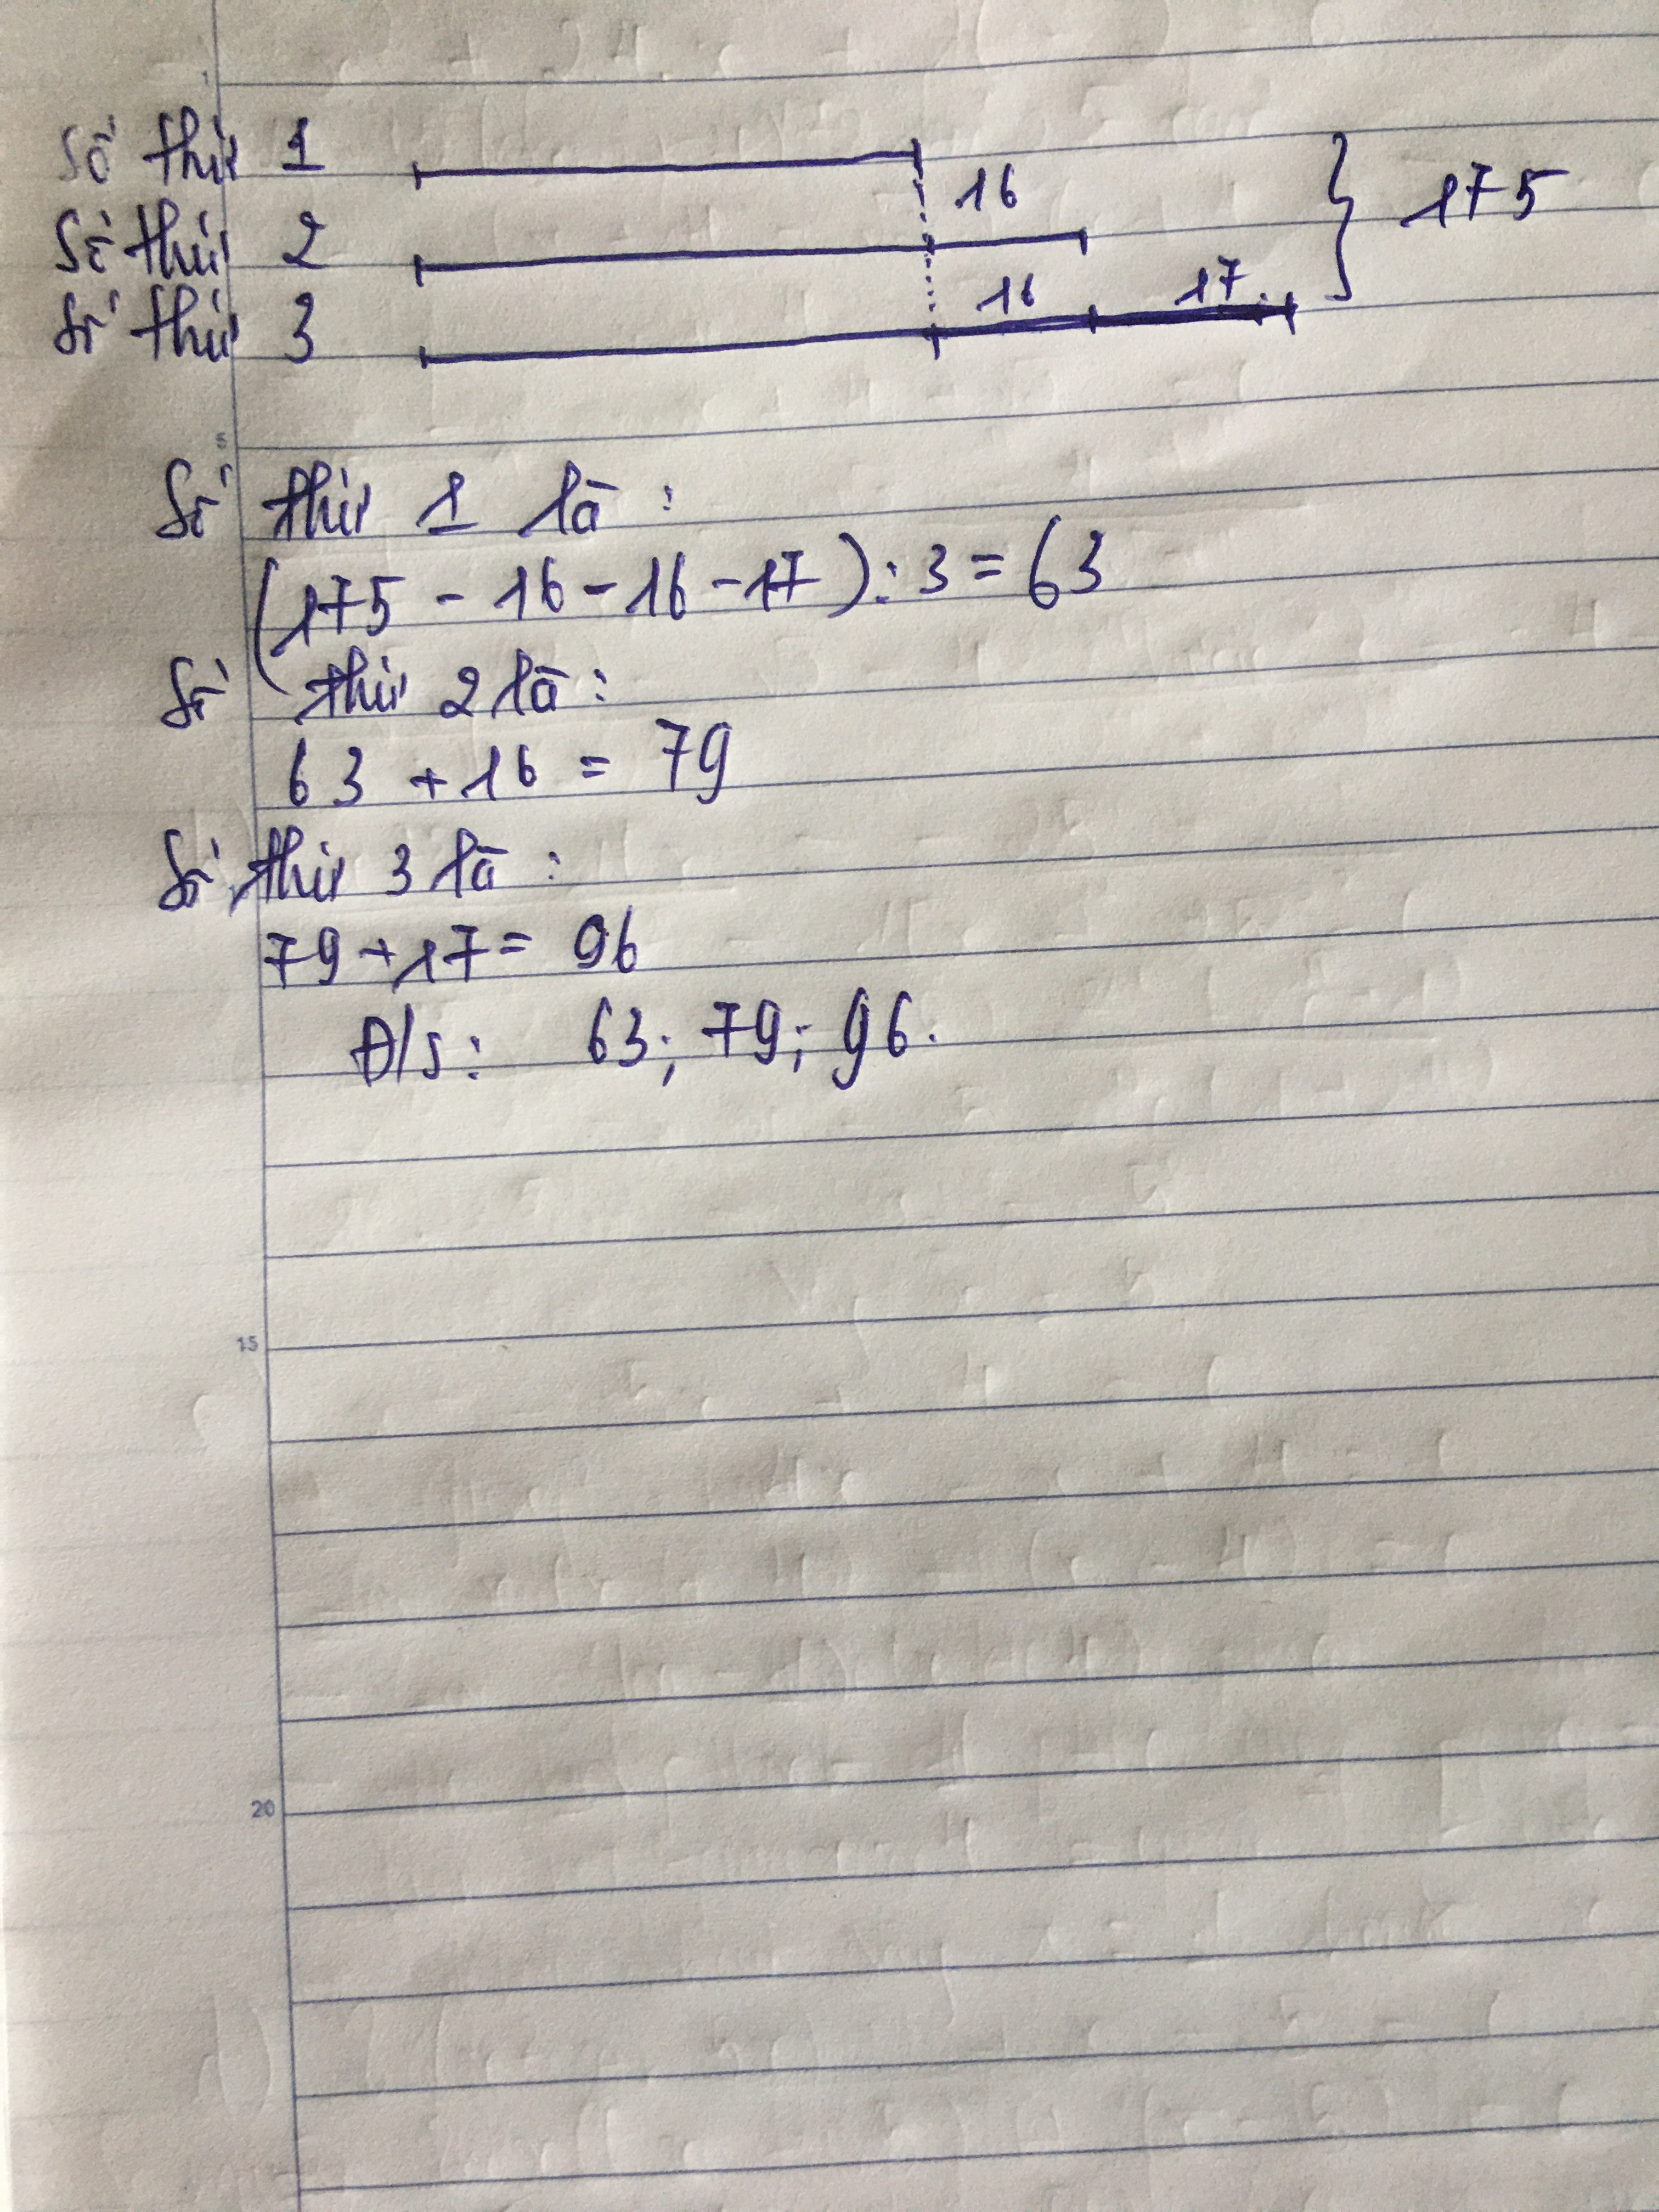 1
Số thứ 1
16
175
Số thứ 2
16 17
Số thứ 3
5
Số thứ 1 là :
(175 - 16 - 16 - 17) : 3 = 63
Số thứ 2 là :
63 + 16 = 79
Số thứ 3 là :
79 + 17 = 96
Đ/s : 63; 79; 96.
15
20